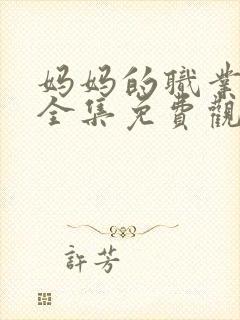 妈妈的職業
全集免費觀
許芳